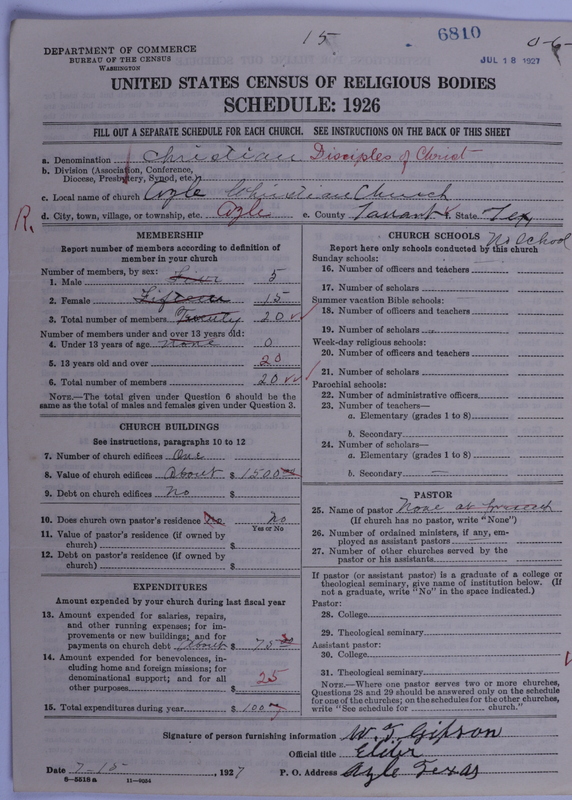 15
6810
0-6-
DEPARTMENT OF COMMERCE
BUREAU OF THE CENSUS
WASHINGTON
JUL 18 1927
UNITED STATES CENSUS OF RELIGIOUS BODIES
SCHEDULE: 1926
FILL OUT A SEPARATE SCHEDULE FOR EACH CHURCH. SEE INSTRUCTIONS ON THE BACK OF THIS SHEET
a. Denomination Christian Disciples of Christ
b. Division (Association, Conference,
Diocese, Presbytery, Synod, etc.)
c. Local name of church Azle Christian Church
R. d. City, town, village, or township, etc. Azle e. County Tarrant f. State Tex
MEMBERSHIP
Report number of members according to definition of
member in your church
Number of members, by sex:
1. Male 5
2. Female Fifteen 15
3. Total number of members Twenty 20
Number of members under and over 13 years old:
4. Under 13 years of age none 0
5. 13 years old and over 20
6. Total number of members 20
NOTE.—The total given under Question 6 should be the
same as the total of males and females given under Question 3.
CHURCH BUILDINGS
See instructions, paragraphs 10 to 12
7. Number of church edifices One
8. Value of church edifices About $ 1500
9. Debt on church edifices No
10. Does church own pastor's residence No No
Yes or No
11. Value of pastor's residence (if owned by
church) $
12. Debt on pastor's residence (if owned by
church) $
EXPENDITURES
Amount expended by your church during last fiscal year
13. Amount expended for salaries, repairs,
and other running expenses; for im-
provements or new buildings; and for
payments on church debt About $ 75
14. Amount expended for benevolences, in-
cluding home and foreign missions; for
denominational support; and for all
other purposes $ 25
15. Total expenditures during year $ 100
CHURCH SCHOOLS No School
Report here only schools conducted by this church
Sunday schools:
16. Number of officers and teachers
17. Number of scholars
Summer vacation Bible schools:
18. Number of officers and teachers
19. Number of scholars
Week-day religious schools:
20. Number of officers and teachers
21. Number of scholars
Parochial schools:
22. Number of administrative officers
23. Number of teachers—
a. Elementary (grades 1 to 8)
b. Secondary
24. Number of scholars—
a. Elementary (grades 1 to 8)
b. Secondary
PASTOR
25. Name of pastor None at present
(If church has no pastor, write "None")
26. Number of ordained ministers, if any, em-
ployed as assistant pastors
27. Number of other churches served by the
pastor or his assistants
If pastor (or assistant pastor) is a graduate of a college or
theological seminary, give name of institution below. (If
not a graduate, write "No" in the space indicated.)
Pastor:
28. College
29. Theological seminary
Assistant pastor:
30. College
31. Theological seminary
NOTE.—Where one pastor serves two or more churches,
Questions 28 and 29 should be answered only on the schedule
for one of the churches; on the schedules for the other churches,
write "See schedule for church."
Signature of person furnishing information W. T. Gipson
Official title Elder
Date 7-15, 1927 P. O. Address Azle Texas
6—5518a 11—9024